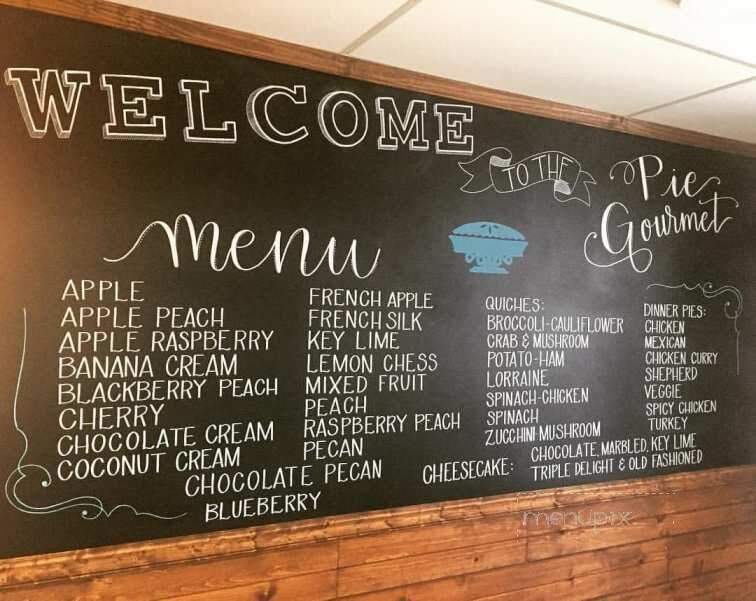 WELCOME
TO THE
Pie
Gourmet
menu
APPLE
APPLE PEACH
APPLE RASPBERRY
BANANA CREAM
BLACKBERRY PEACH
CHERRY
CHOCOLATE CREAM
COCONUT CREAM
FRENCH APPLE
FRENCH SILK
KEY LIME
LEMON CHESS
MIXED FRUIT
PEACH
RASPBERRY PEACH
PECAN
CHOCOLATE PECAN
BLUEBERRY
QUICHES:
BROCCOLI-CAULIFLOWER
CRAB & MUSHROOM
POTATO-HAM
LORRAINE
SPINACH-CHICKEN
SPINACH
ZUCCHINI-MUSHROOM
DINNER PIES:
CHICKEN
MEXICAN
CHICKEN CURRY
SHEPHERD
VEGGIE
SPICY CHICKEN
TURKEY
CHEESECAKE:
CHOCOLATE, MARBLED, KEY LIME
TRIPLE DELIGHT & OLD FASHIONED
menupix